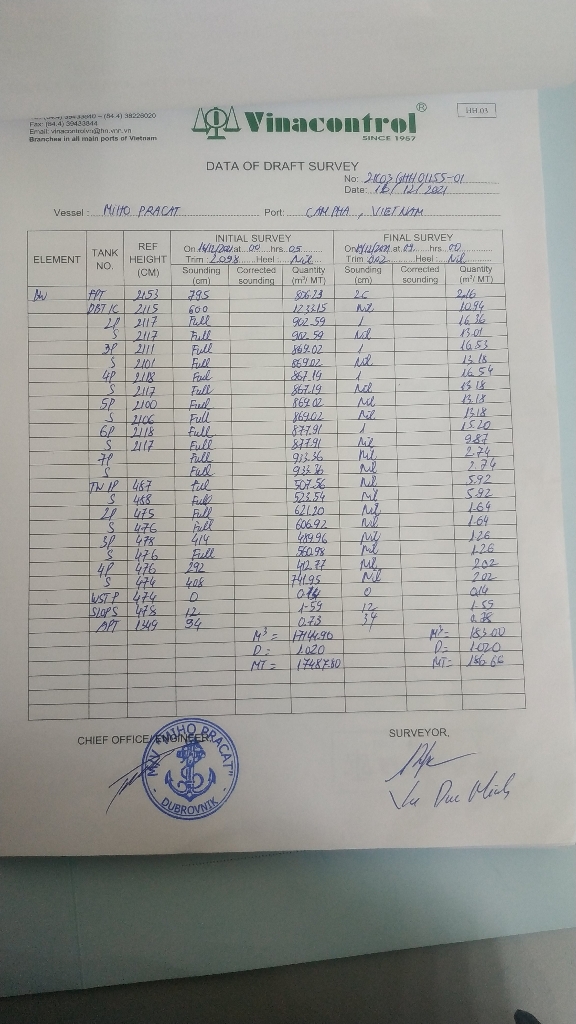 Fax: (84.4) 39433844
Email: vinacontrolvn@hn.vnn.vn
Branches in all main ports of Vietnam
Vinacontrol ®
SINCE 1957
HH.03
DATA OF DRAFT SURVEY
No:
Date: 12/2021
Vessel: MIHO PRACAT Port: CAM PHA, VIETNAM
ELEMENT TANK NO. REF HEIGHT (CM) INITIAL SURVEY FINAL SURVEY
On 14/12/2021 at 09 hrs 05 On at 09 hrs 00
Trim: 2.098 Heel: Nil Trim 0.02 Heel: Nil
Sounding (cm) Corrected sounding Quantity (m³/ MT) Sounding (cm) Corrected sounding Quantity (m³/ MT)
FPT 2153 795 806.23 2.16
2115 600 1233.15 Nil 10.94
2P 2117 Full 902.59 1 16.26
S 2117 Full 902.59 Nil 13.01
3P 2111 Full 869.02 1 16.53
S 2101 Full 869.02 Nil 13.18
4P 2118 Full 867.19 1 16.54
S 2117 Full 867.19 Nil 13.18
5P 2100 Full 869.02 Nil 13.18
S 2106 Full 869.02 Nil 13.18
6P 2118 Full 877.91 1 15.20
S 2117 Full 877.91 Nil 9.87
7P Full 933.36 Nil 2.74
S Full 933.36 Nil 2.74
1P 487 Full 507.56 Nil 5.92
S 488 Full 523.54 Nil 5.92
2P 475 Full 621.20 Nil 1.64
S 476 Full 606.92 Nil 1.64
3P 478 414 489.96 Nil 1.26
S 476 Full 560.98 Nil 1.26
4P 476 292 412.77 Nil 2.02
S 474 408 741.95 Nil 2.02
WST P 474 0 0.14 0 0.14
SLOP S 478 12 1.59 12 1.59
APT 1349 34 0.73 34
M³ = 17144.90 M³ = 183.00
D = 1.020 D = 1.020
MT = 17487.80 MT = 186.66
CHIEF OFFICE/ENGINEER, SURVEYOR,
M/V "MIHO PRACAT"
DUBROVNIK
Vu Duc Minh